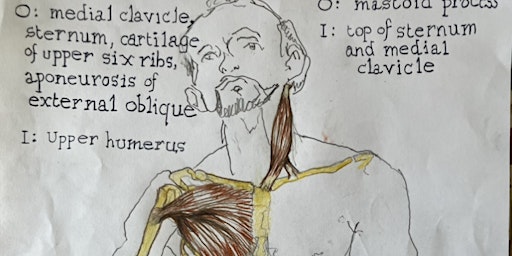 O: medial clavicle,
sternum, cartilage
of upper six ribs,
aponeurosis of
external oblique
I: Upper humerus
O: mastoid process
I: top of sternum
and medial
clavicle